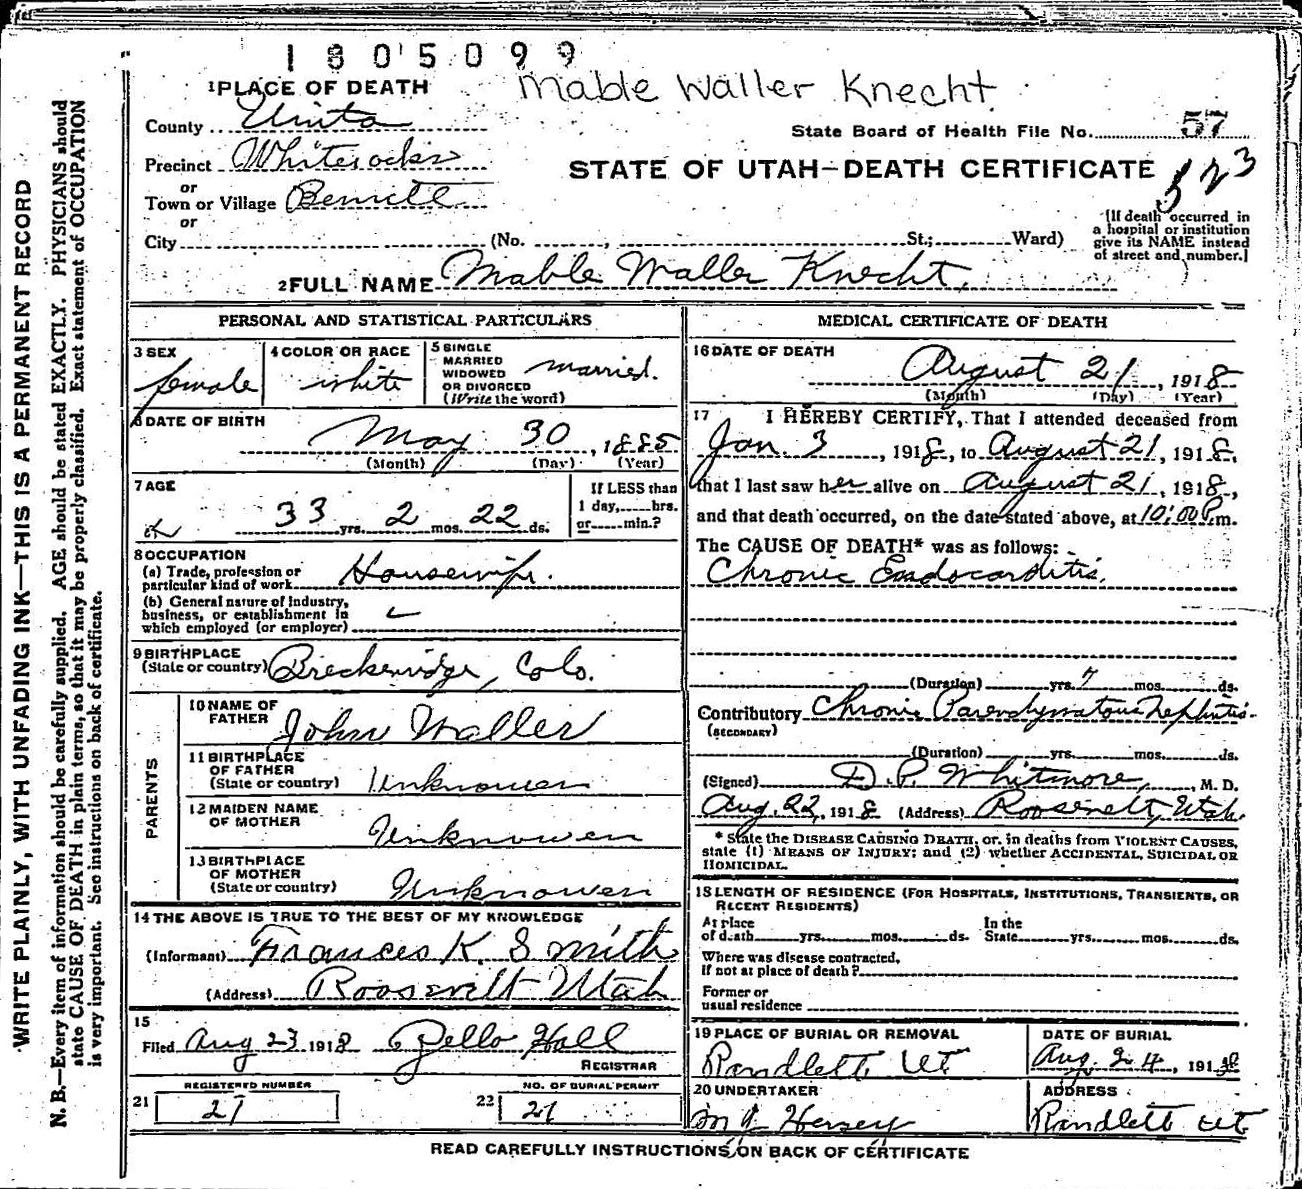 1805099
Mable Waller Knecht
1 PLACE OF DEATH
County Uinta
State Board of Health File No. 57
Precinct Whiterocks
STATE OF UTAH—DEATH CERTIFICATE
523
or
Town or Village Bennett
or
City (No. , St.; Ward)
(If death occurred in
a hospital or institution
give its NAME instead
of street and number.)
2 FULL NAME Mable Waller Knecht.
PERSONAL AND STATISTICAL PARTICULARS
3 SEX
female
4 COLOR OR RACE
white
5 SINGLE
MARRIED
WIDOWED
OR DIVORCED
(Write the word)
married.
6 DATE OF BIRTH
May 30, 1885
(Month) (Day) (Year)
7 AGE
33 yrs. 2 mos. 22 ds.
If LESS than
1 day, hrs.
or min.?
8 OCCUPATION
(a) Trade, profession or
particular kind of work Housewife.
(b) General nature of Industry,
business, or establishment in
which employed (or employer)
9 BIRTHPLACE
(State or country) Breckenridge, Colo.
PARENTS
10 NAME OF
FATHER John Waller
11 BIRTHPLACE
OF FATHER
(State or country) Unknowen
12 MAIDEN NAME
OF MOTHER Unknowen
13 BIRTHPLACE
OF MOTHER
(State or country) Unknowen
14 THE ABOVE IS TRUE TO THE BEST OF MY KNOWLEDGE
(Informant) Frances K. Smith
(Address) Roosevelt Utah
15
Filed Aug 23 1918 Zello Hall
REGISTRAR
REGISTERED NUMBER
21 21
NO. OF BURIAL PERMIT
22 21
MEDICAL CERTIFICATE OF DEATH
16 DATE OF DEATH
August 21, 1918
(Month) (Day) (Year)
17 I HEREBY CERTIFY, That I attended deceased from
Jan. 3, 1918, to August 21, 1918,
that I last saw her alive on August 21, 1918,
and that death occurred, on the date stated above, at 10:00 P.m.
The CAUSE OF DEATH* was as follows:
Chronic Endocarditis.
(Duration) yrs. 7 mos. ds.
Contributory Chronic Parenchymatous Nephritis.
(SECONDARY)
(Duration) yrs. mos. ds.
(Signed) D. P. Whitmore, M. D.
Aug. 22, 1918 (Address) Roosevelt, Utah
* State the DISEASE CAUSING DEATH, or, in deaths from VIOLENT CAUSES,
state (1) MEANS OF INJURY; and (2) whether ACCIDENTAL, SUICIDAL OR
HOMICIDAL.
18 LENGTH OF RESIDENCE (FOR HOSPITALS, INSTITUTIONS, TRANSIENTS, OR
RECENT RESIDENTS)
At place
of death yrs. mos. ds.
In the
State yrs. mos. ds.
Where was disease contracted,
If not at place of death?
Former or
usual residence
19 PLACE OF BURIAL OR REMOVAL
Randlett Ut
DATE OF BURIAL
Aug. 24, 1918
20 UNDERTAKER
Hersey
ADDRESS
Randlett Ut
READ CAREFULLY INSTRUCTIONS ON BACK OF CERTIFICATE
WRITE PLAINLY, WITH UNFADING INK—THIS IS A PERMANENT RECORD
N. B.—Every item of information should be carefully supplied. AGE should be stated EXACTLY. PHYSICIANS should
state CAUSE OF DEATH in plain terms, so that it may be properly classified. Exact statement of OCCUPATION
is very important. See instructions on back of certificate.